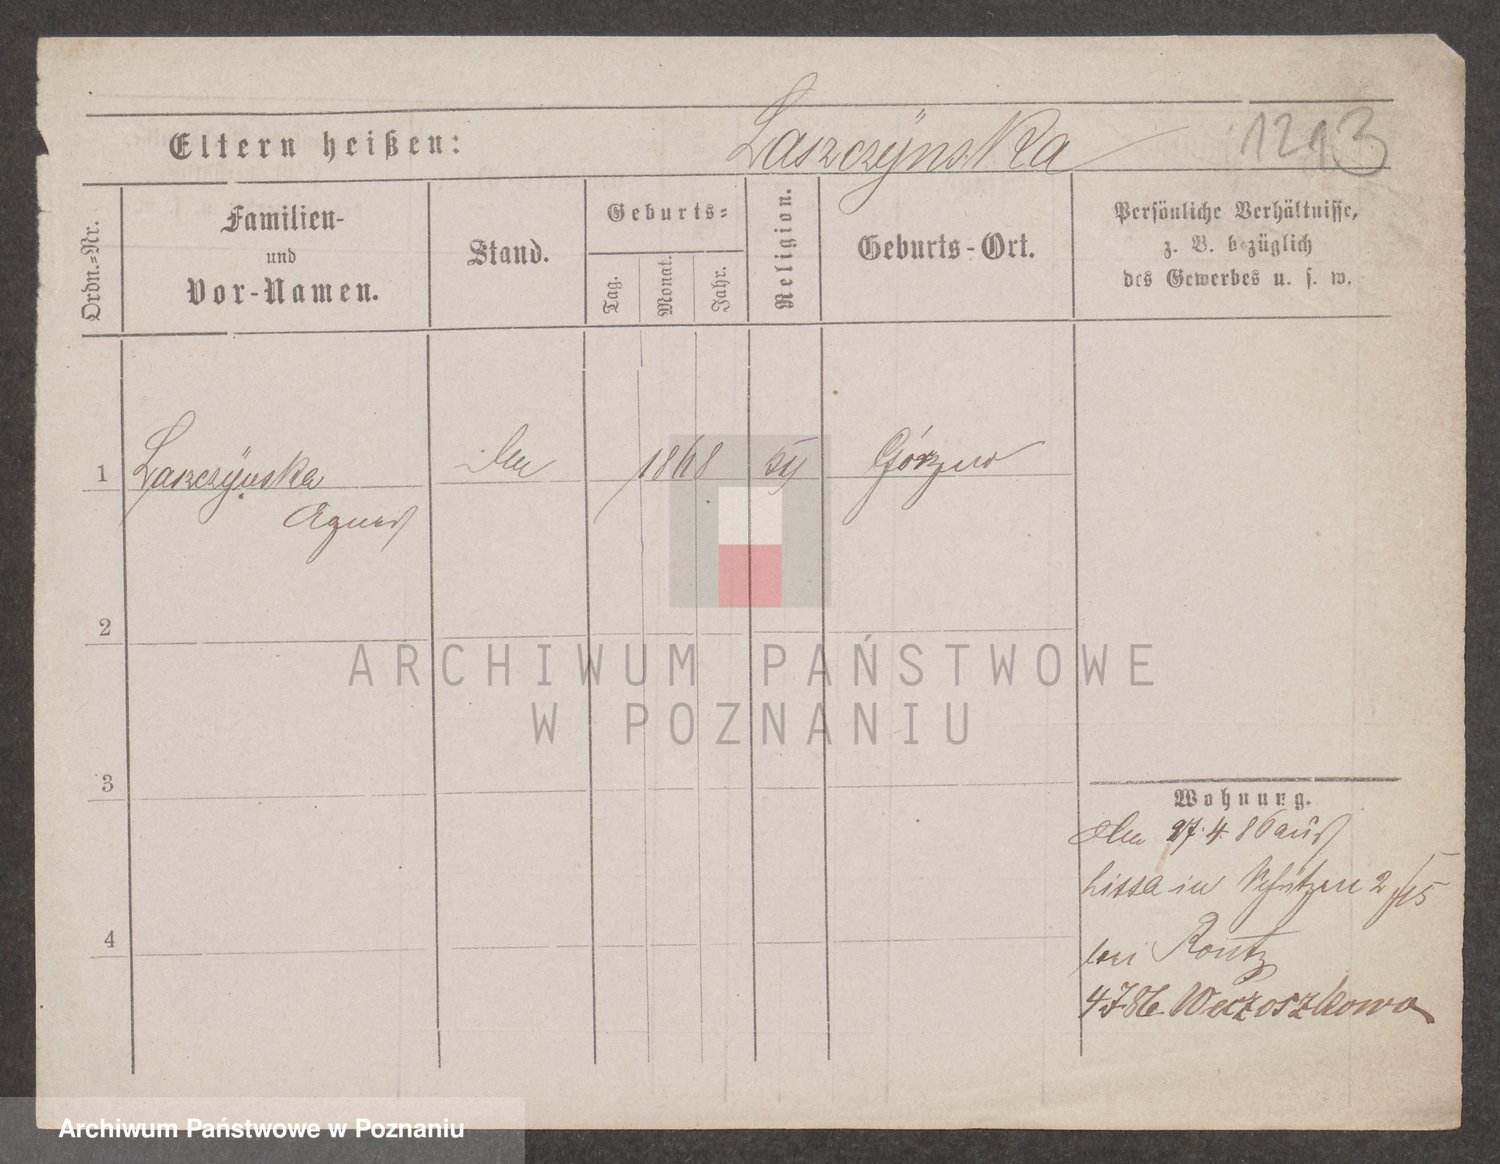 Eltern heißen: Laszczÿnska 1213
Ordn.-Nr.
Familien-
und
Vor-Namen.
Stand.
Geburts-
Tag.
Monat.
Jahr.
Religion.
Geburts-Ort.
Persönliche Verhältnisse,
z. B. bezüglich
des Gewerbes u. s. w.
1 Laszczÿnska 1868 Górzno
Agnes
2
3
4
Wohnung.
27.4.86 aus
Lissa in Schützen 2/15
bei
4786
ARCHIWUM PAŃSTWOWE
W POZNANIU
Archiwum Państwowe w Poznaniu